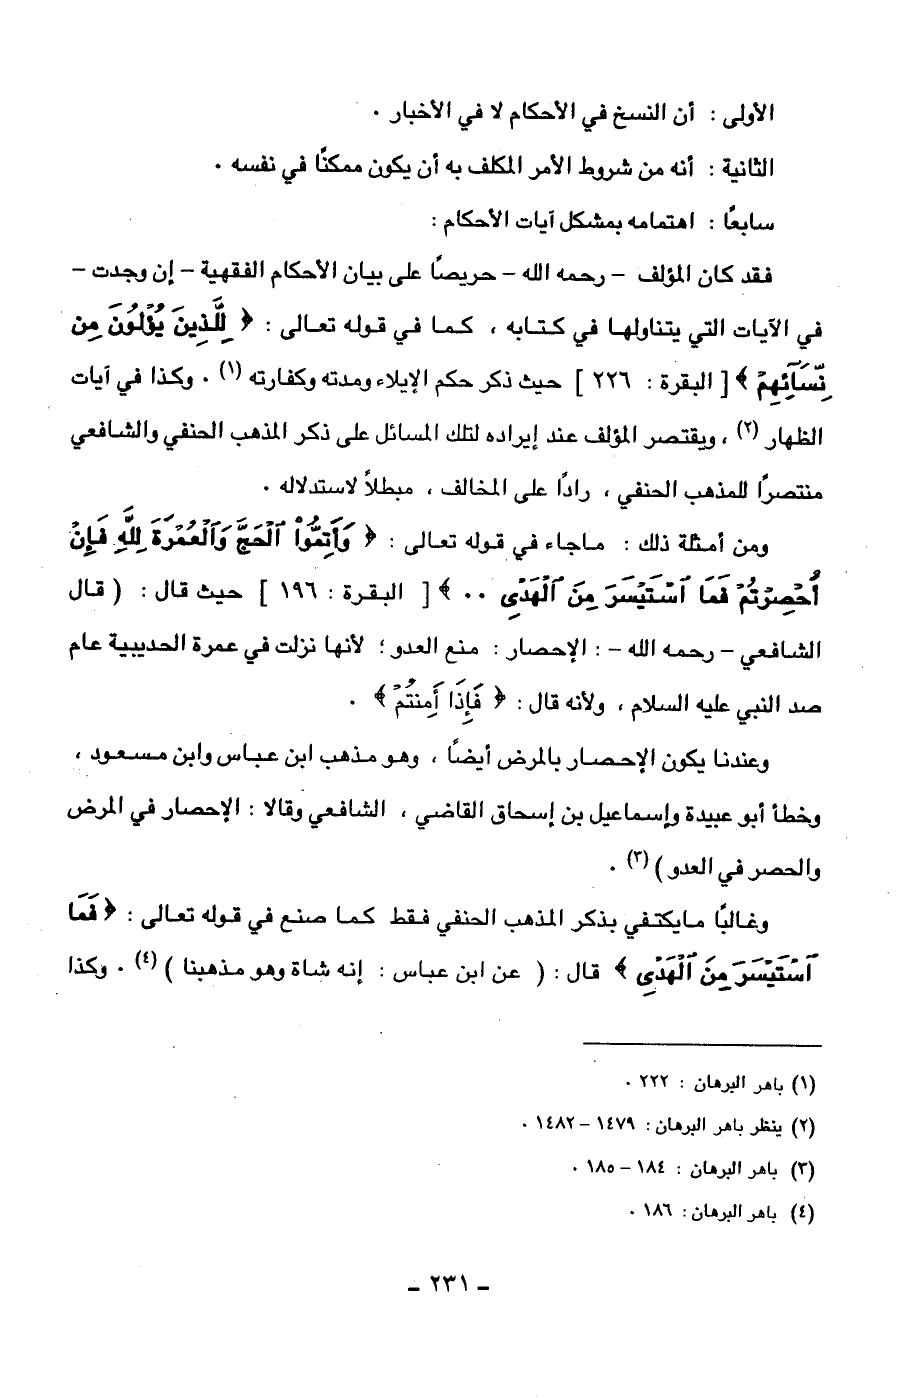 الأولى : أن النسخ في الأحكام لا في الأخبار .
الثانية : أنه من شروط الأمر المكلف به أن يكون ممكنًا في نفسه .
سابعًا : اهتمامه بمشكل آيات الأحكام :
فقد كان المؤلف – رحمه الله – حريصًا على بيان الأحكام الفقهية – إن وجدت –
في الآيات التي يتناولها في كتابه ، كما في قوله تعالى : ﴿ لِّلَّذِينَ يُؤْلُونَ مِن
نِّسَآئِهِمْ ﴾ [ البقرة : ٢٢٦ ] حيث ذكر حكم الإيلاء ومدته وكفارته (١) . وكذا في آيات
الظهار (٢) ، ويقتصر المؤلف عند إيراده لتلك المسائل على ذكر المذهب الحنفي والشافعي
منتصرًا للمذهب الحنفي ، رادًا على المخالف ، مبطلاً لاستدلاله .
ومن أمثلة ذلك : ماجاء في قوله تعالى : ﴿ وَأَتِمُّواْ ٱلْحَجَّ وَٱلْعُمْرَةَ لِلَّهِ فَإِنْ
أُحْصِرْتُمْ فَمَا ٱسْتَيْسَرَ مِنَ ٱلْهَدْىِ .. ﴾ [ البقرة : ١٩٦ ] حيث قال : ( قال
الشافعي – رحمه الله – : الإحصار : منع العدو ؛ لأنها نزلت في عمرة الحديبية عام
صد النبي عليه السلام ، ولأنه قال : ﴿ فَإِذَآ أَمِنتُمْ ﴾ .
وعندنا يكون الإحصار بالمرض أيضًا ، وهو مذهب ابن عباس وابن مسعود ،
وخطأ أبو عبيدة وإسماعيل بن إسحاق القاضي ، الشافعي وقالا : الإحصار في المرض
والحصر في العدو ) (٣) .
وغالبًا مايكتفي بذكر المذهب الحنفي فقط كما صنع في قوله تعالى : ﴿ فَمَا
ٱسْتَيْسَرَ مِنَ ٱلْهَدْىِ ﴾ قال : ( عن ابن عباس : إنه شاة وهو مذهبنا ) (٤) . وكذا
(١) باهر البرهان : ٢٢٢ .
(٢) ينظر باهر البرهان : ١٤٧٩ – ١٤٨٢ .
(٣) باهر البرهان : ١٨٤ – ١٨٥ .
(٤) باهر البرهان : ١٨٦ .
- ٢٣١ -